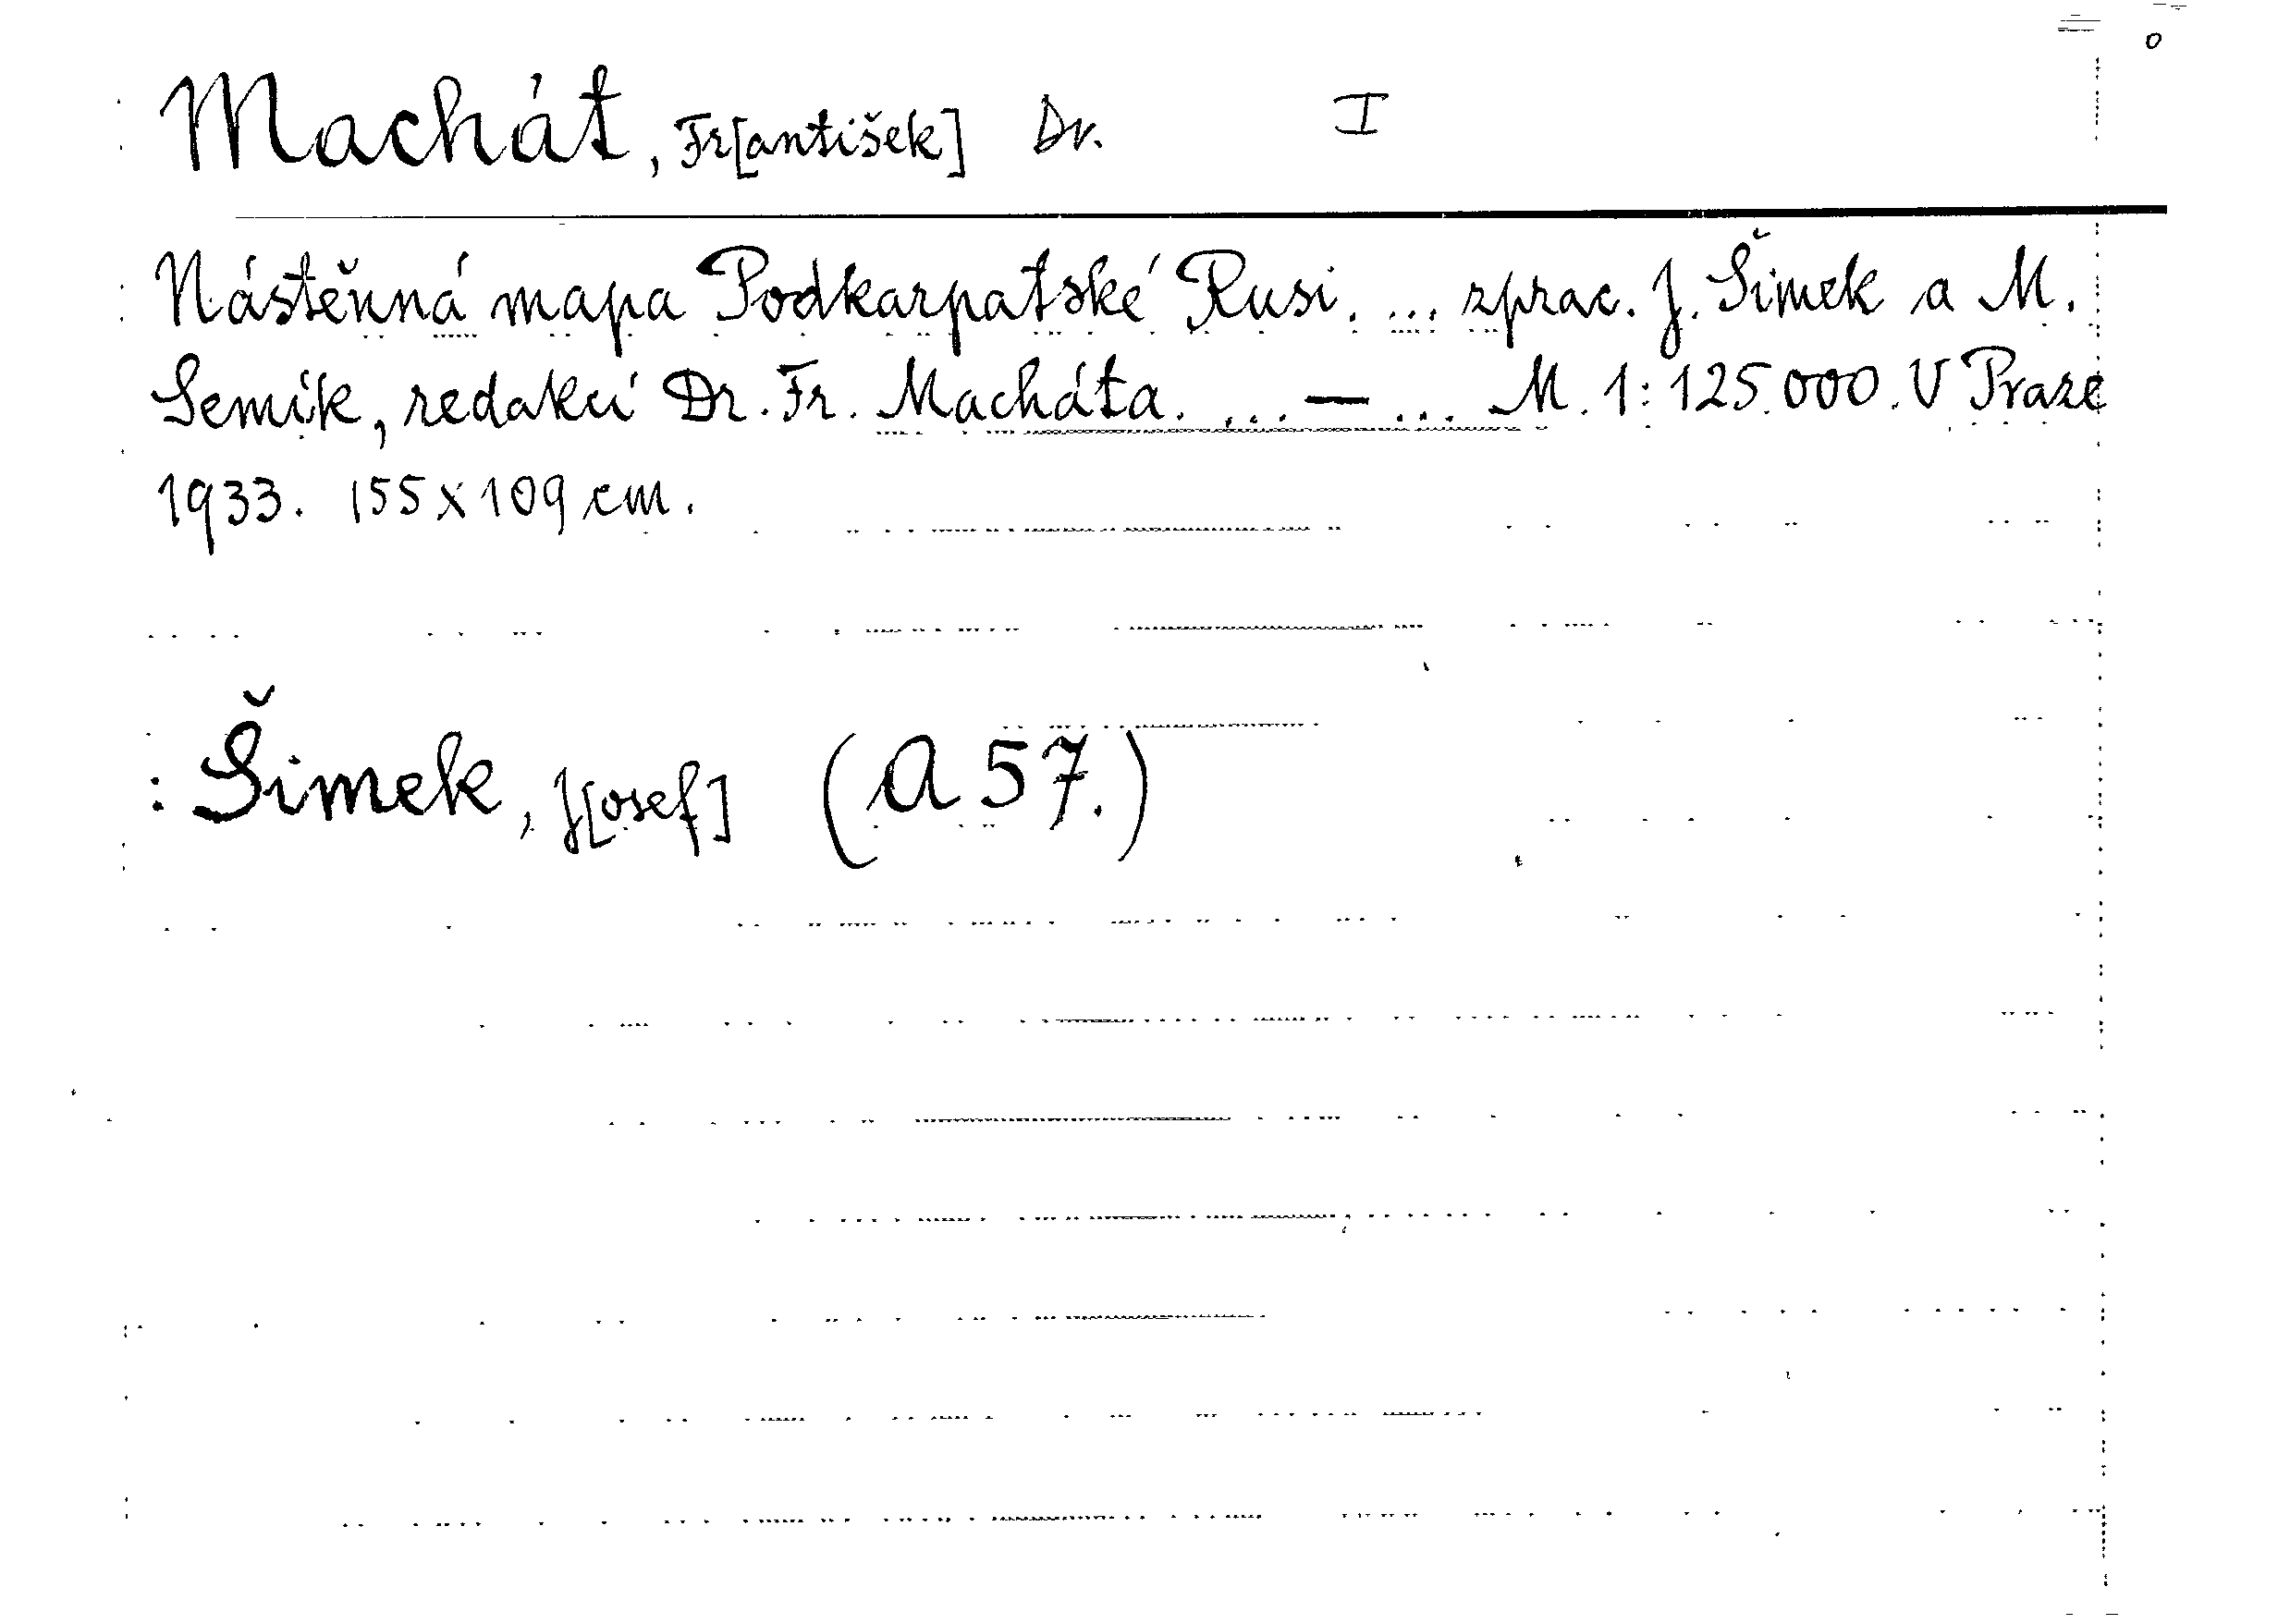 Machát, Fr[antišek] Dr. I
Nástěnná mapa Podkarpatské Rusi. ... zprac. J. Šimek a M.
Semík, redakcí Dr. Fr. Macháta. ... — ... M. 1:125.000. V Praze
1933. 155x109 cm.
: Šimek, J[osef] (A 57.)